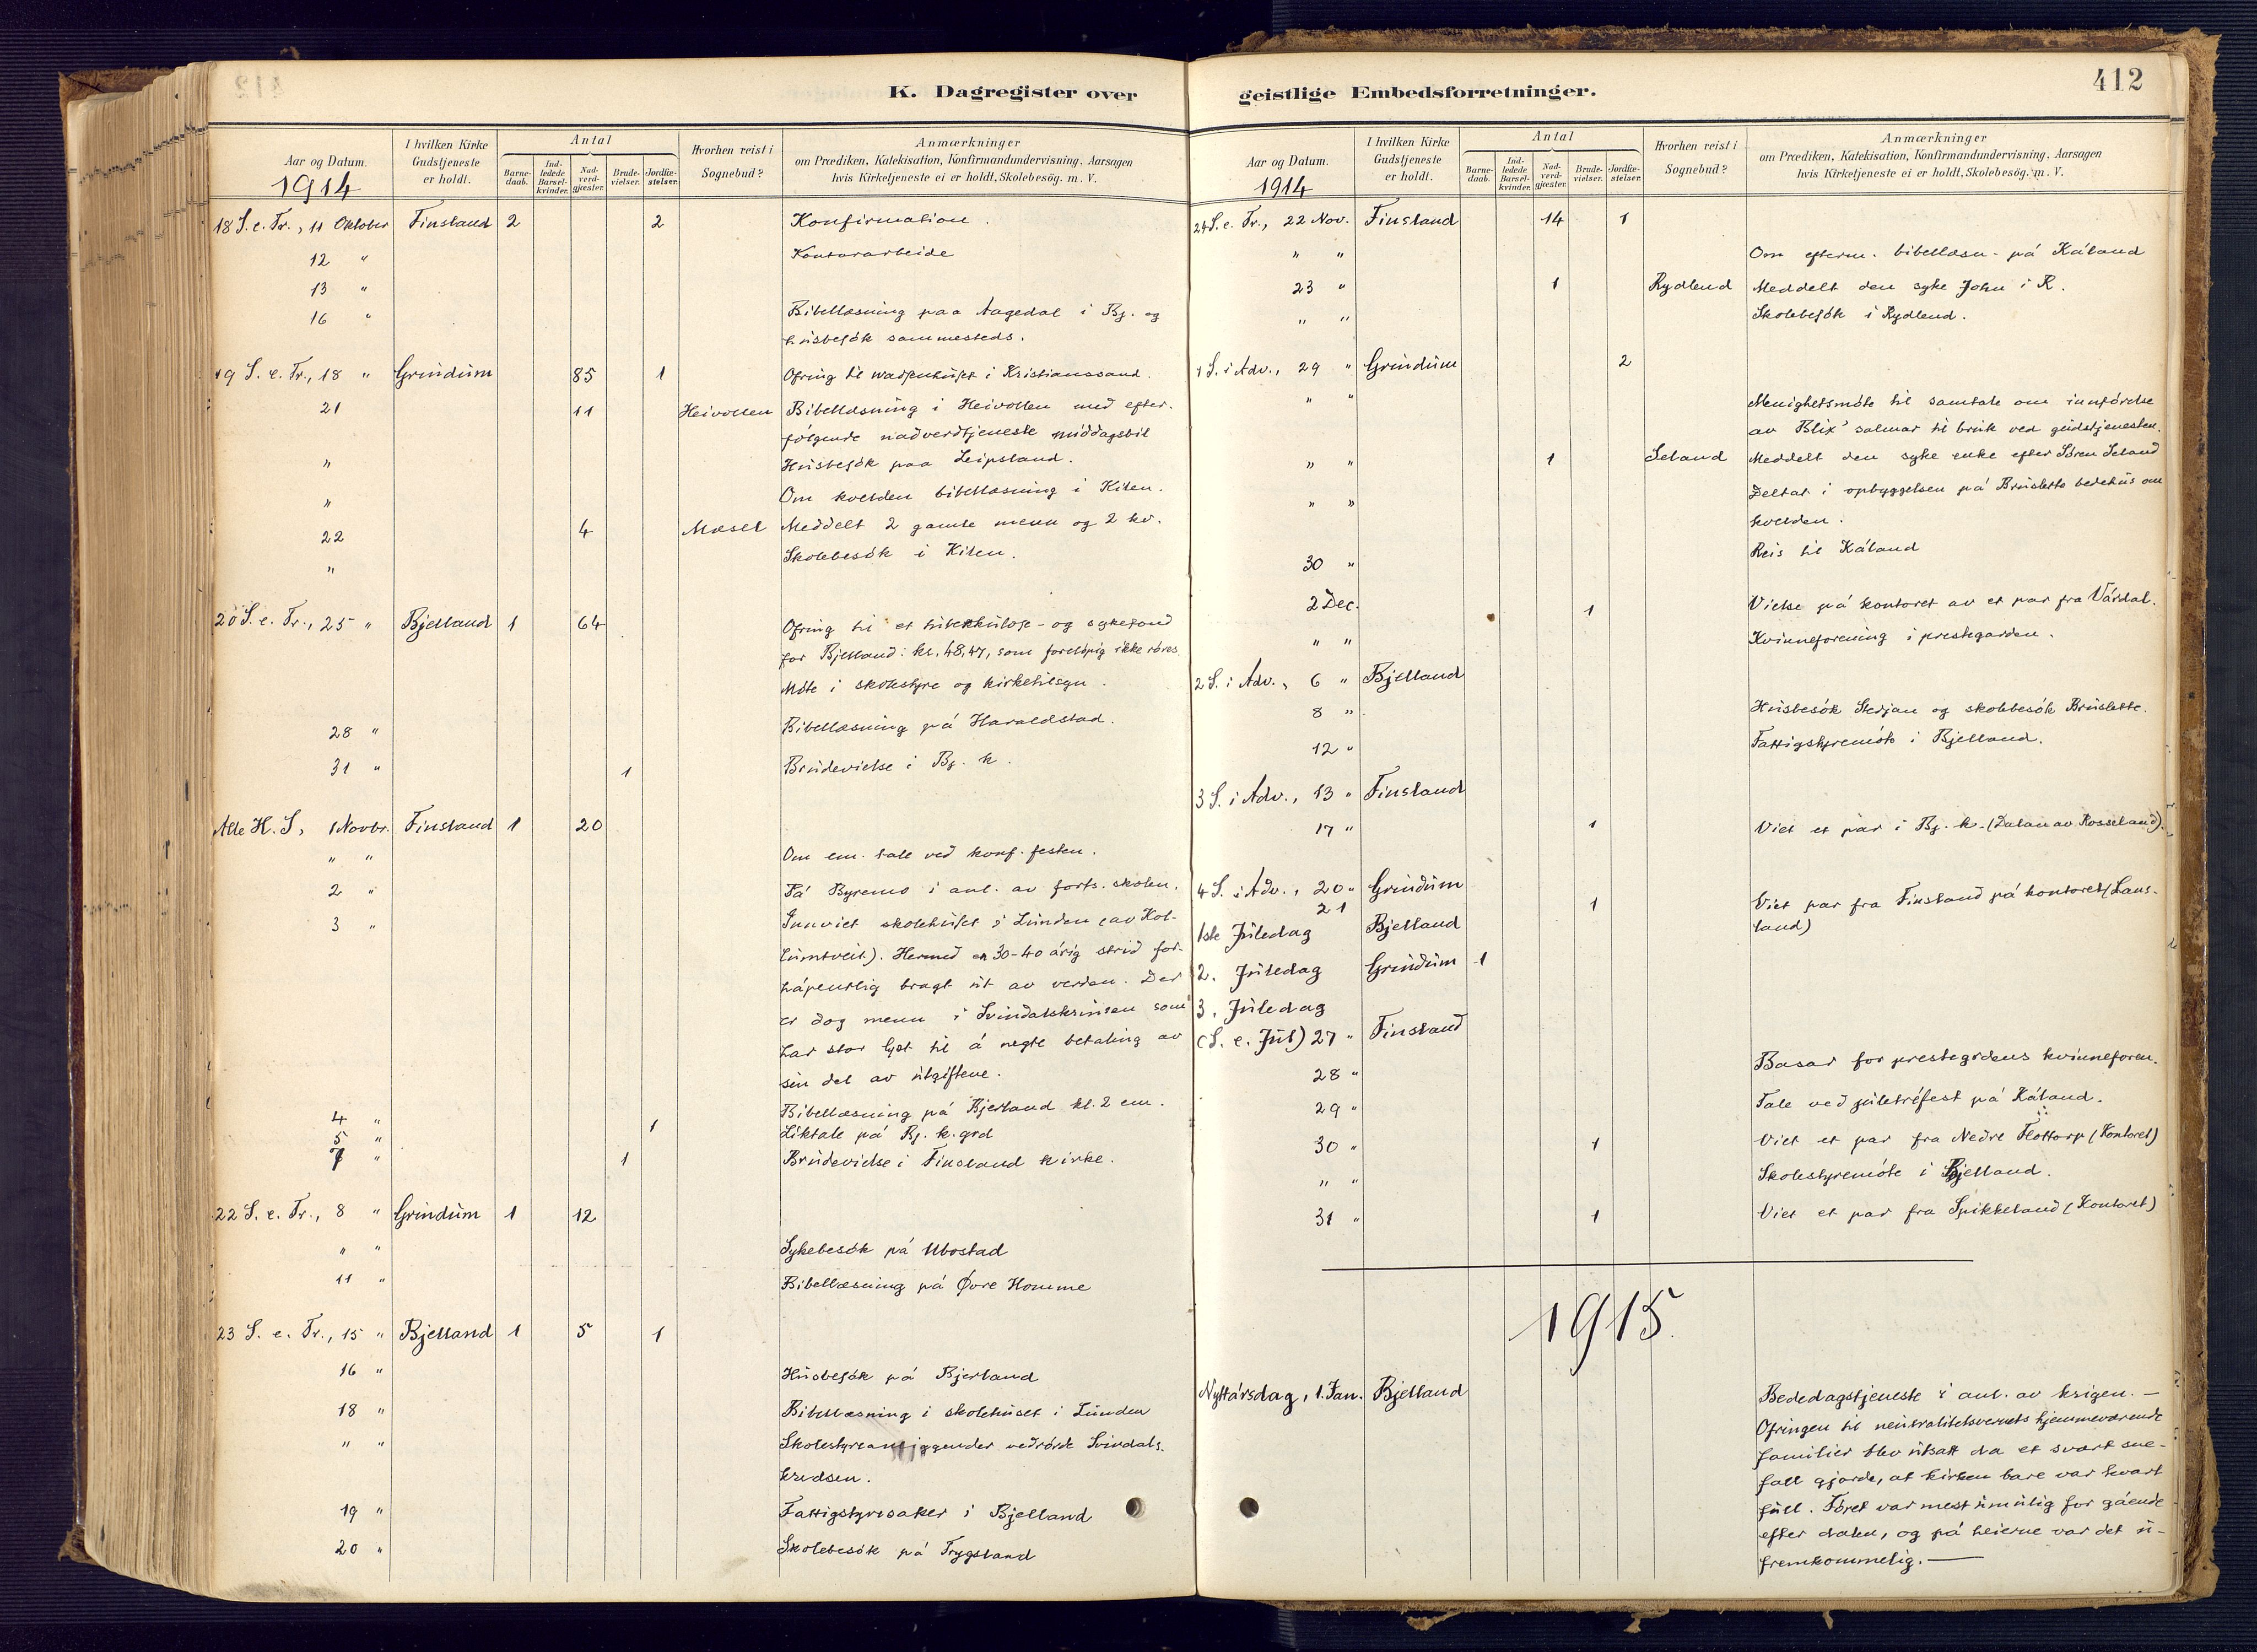 412
K. Dagregister over
Aar og Datum.
1914
I hvilken Kirke Gudstjeneste er holdt.
Antal
Barne-daab.
Ind-ledede Barsel-kvinder.
Nad-verd-gjæster.
Brude-vielser.
Jordfæ-stelser.
Hvorhen reist i Sognebud?
Anmærkninger
om Prædiken, Katekisation, Konfirmandundervisning, Aarsagen
hvis Kirketjeneste ei er holdt, Skolebesøg. m. V.
18 S. e. Tr., 11 Oktober Finsland 2 2 Konfirmation.
12 " Kontorarbeide
13 "
16 " Bibellæsning paa Aagedal i Bj. og
húsbesök sammesteds.
19 S. e. Tr., 18 " Grindúm 85 1 Ofring til i Kristianssand.
21 11 Heivollen Bibellæsning i Heivollen med efter-
fölgende nadverdtjeneste middagsbil
" Húsbesök paa Leipsland.
" Om kvelden bibellæsning i Kilen.
22 4 Mæsel Meddelt 2 gamle menn og 2 kv.
" Skolebesök i Kilen.
20 S. e. Tr., 25 " Bjelland 1 64 Ofring til et túberkúlose- og sykefond
for Bjelland: kr. 48,47, som forelöpig ikke röres.
Möte i skolestyre og kirketilsyn.
28 " Bibellæsning på Haraldstad.
31 " 1 Brúdevielse i Bj. k.
Alle H. S, 1 Novbr. Finsland 1 20
" " Om em. tale ved konf. festen.
2 " På Byremo i anl. av forts. skolen.
3 " Innviet skolehúset i Lúnden (av Hol-
lúmtveit). Hermed en 30-40 årig strid for-
håpentlig bragt út av verden. Der
er dog menn i som
har stor lyst til å negte betaling av
sin del av útgiftene.
4 " Bibellæsning på Bjerland kl. 2 em.
5 " 1 Liktale på Bj. k. grd
7 " 1 Brúdevielse i Finsland kirke.
22 S. e. Tr., 8 " Grindúm 1 12
" " Sykebesök på Ubostad
11 " Bibellæsning på Øvre Homme
23 S. e. Tr., 15 " Bjelland 1 5 1
16 " Húsbesök på Bjerland
18 " Bibellæsning i skolehúset i Lúnden
" " Skolestyreanliggender vedrörde Svindals-
kredsen.
19 " Fattigstyresaker i Bjelland
20 " Skolebesök på Trygsland
geistlige Embedsforretninger.
412
Aar og Datum.
1914
I hvilken Kirke Gudstjeneste er holdt.
Antal
Barne-daab.
Ind-ledede Barsel-kvinder.
Nad-verd-gjæster.
Brude-vielser.
Jordfæ-stelser.
Hvorhen reist i Sognebud?
Anmærkninger
om Prædiken, Katekisation, Konfirmandundervisning, Aarsagen
hvis Kirketjeneste ei er holdt, Skolebesøg. m. V.
24 S. e. Tr., 22 Nov. Finsland 14 1
" " Om efterm. bibellæsn. på Kåland
23 " 1 Rydlend Meddelt den syke John i R.
" " Skolebesök i Rydlend.
1 S. i Adv., 29 " Grindúm 2
" " Menighetsmöte til samtale om innförelse
av Blix' salmar til brúk ved gúdstjenesten.
" " 1 Seland Meddelt den syke enke efter Sören Seland
" " Deltat i opbyggelsen på Brúslette bedehús om
kvelden.
30 " Reis til Kåland
2 Dec. 1 Vielse på kontoret av et par fra Vårdal.
" " Kvinneforening i prestegarden.
2 S. i Adv., 6 " Bjelland
8 " Húsbesök Stedjan og skolebesök Brúslette.
12 " Fattigstyremöte i Bjelland.
3 S. i Adv., 13 " Finsland
17 " 1 Viet et par i Bj. k. (Dalan av Rosseland).
4 S. i Adv., 20 " Grindúm
21 1 Viet par fra Finsland på kontoret (Laus-
land)
1ste Júledag Bjelland
2. Júledag Grindúm 1
3. Júledag
(S. e. Júl) 27 " Finsland
28 " Basar for prestegrdens kvinneforen.
29 " Tale ved júletréfest på Kåland.
30 " 1 Viet et par fra Nedre Flottorp (Kontoret)
" " Skolestyremöte i Bjelland.
31 " 1 Viet et par fra Spikkeland (Kontoret)
1915.
Nyttårsdag, 1. Jan. Bjelland Bededagstjeneste i anl. av krigen. —
Ofringen til neútralitetsvernets hjemmeværende
familier blev útsatt da et svært sne-
fall gjorde, at kirken bare var kvart
fúll. Föret var mest úmúlig for gående
efter dalen, og på heierne var det ú-
fremkommelig. —